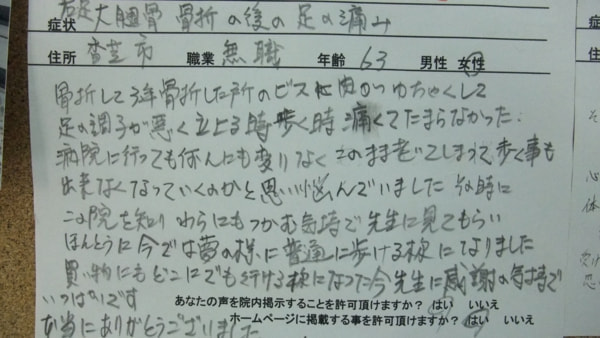 症状 右足大腿骨 骨折の後の足の痛み
住所 香芝市 職業 無職 年齢 63 男性 女性
骨折して3年骨折した所のビスに肉がゆちゃくして
足の調子が悪く立上る時歩く時痛くてたまらなかった.
病院に行っても何んにも変りなくこのまま老てしまうて、歩く事も
出来なくなっていくのかと思い悩んでいました そな時に
この院を知り わらにもつかむ気持で先生に見てもらい
ほんとうに今では夢の様に普通に歩ける様になりました
買い物にもどこにでも行ける様になった今先生に感謝の気持で
いっぱいです
あなたの声を院内掲示することを許可頂けますか? はい いいえ
ホームページに掲載する事を許可頂けますか? はい いいえ
本当にありがとうございました